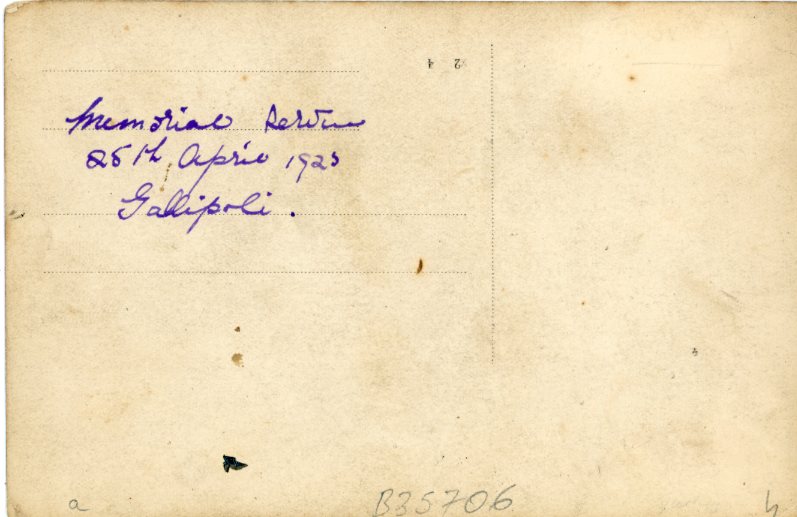 2 4
Memorial Service
25th April 1923
Gallipoli.
4
a B35706 h